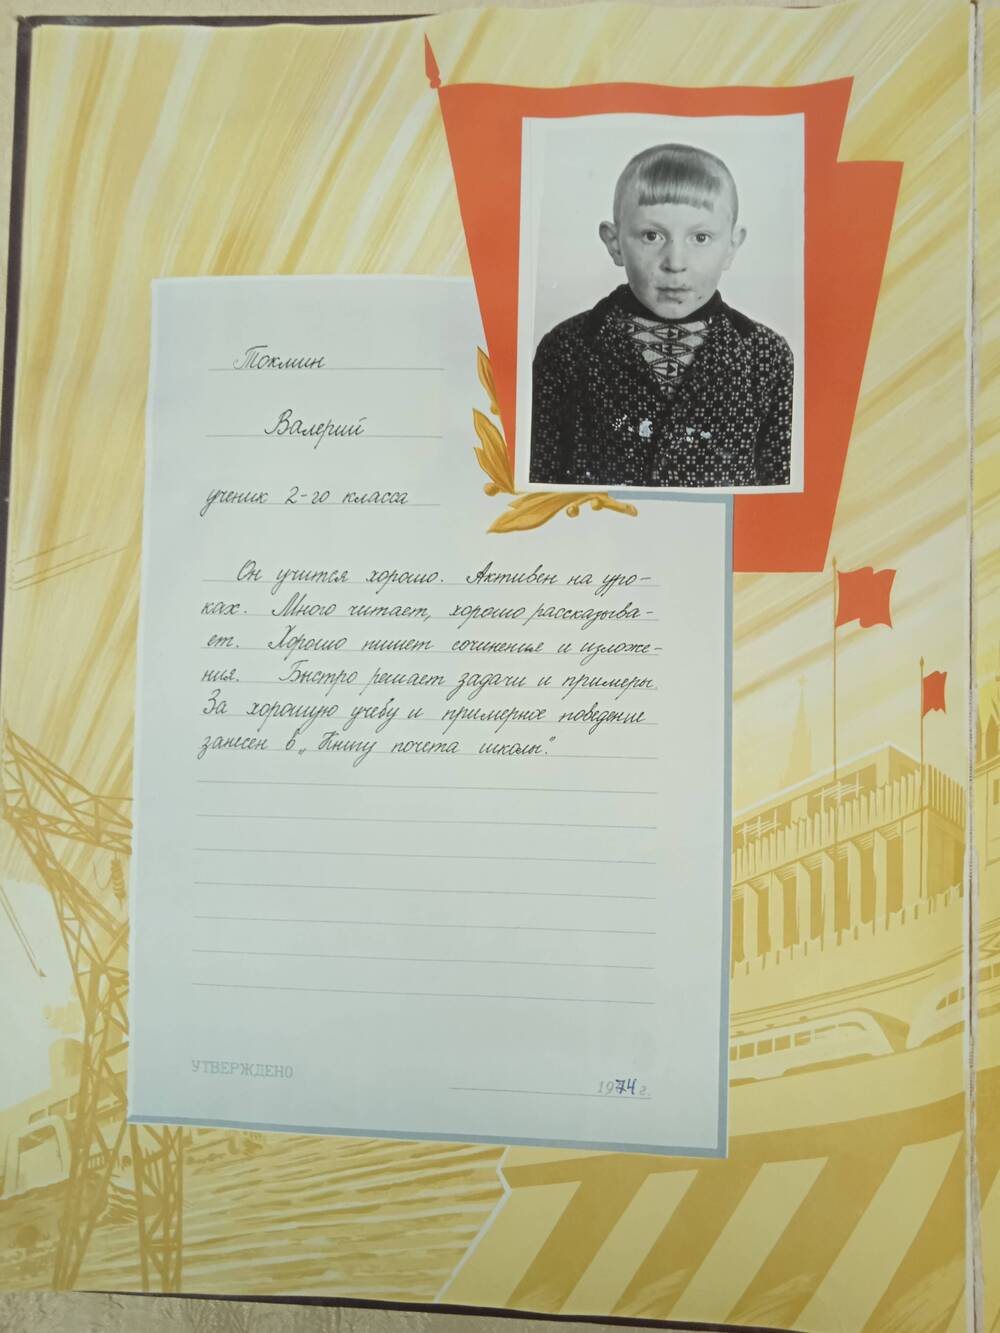 Токмин
Валерий
ученик 2-го класса
Он учится хорошо. Активен на уро-
ках. Много читает, хорошо рассказыва-
ет. Хорошо пишет сочинения и изложе-
ния. Быстро решает задачи и примеры.
За хорошую учебу и примерное поведение
занесен в „Книгу почета школы".
УТВЕРЖДЕНО
1974 г.